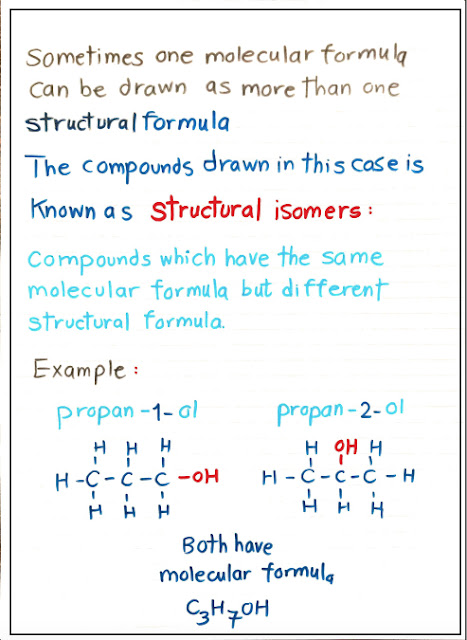 Sometimes one molecular formula
can be drawn as more than one
structural formula
The compounds drawn in this case is
Known as structural isomers:
Compounds which have the same
molecular formula but different
structural formula.
Example:
propan-1-ol propan-2-ol
H H H H OH H
H-C-C-C-OH H-C-C-C-H
H H H H H H
Both have
molecular formula
C₃H₇OH